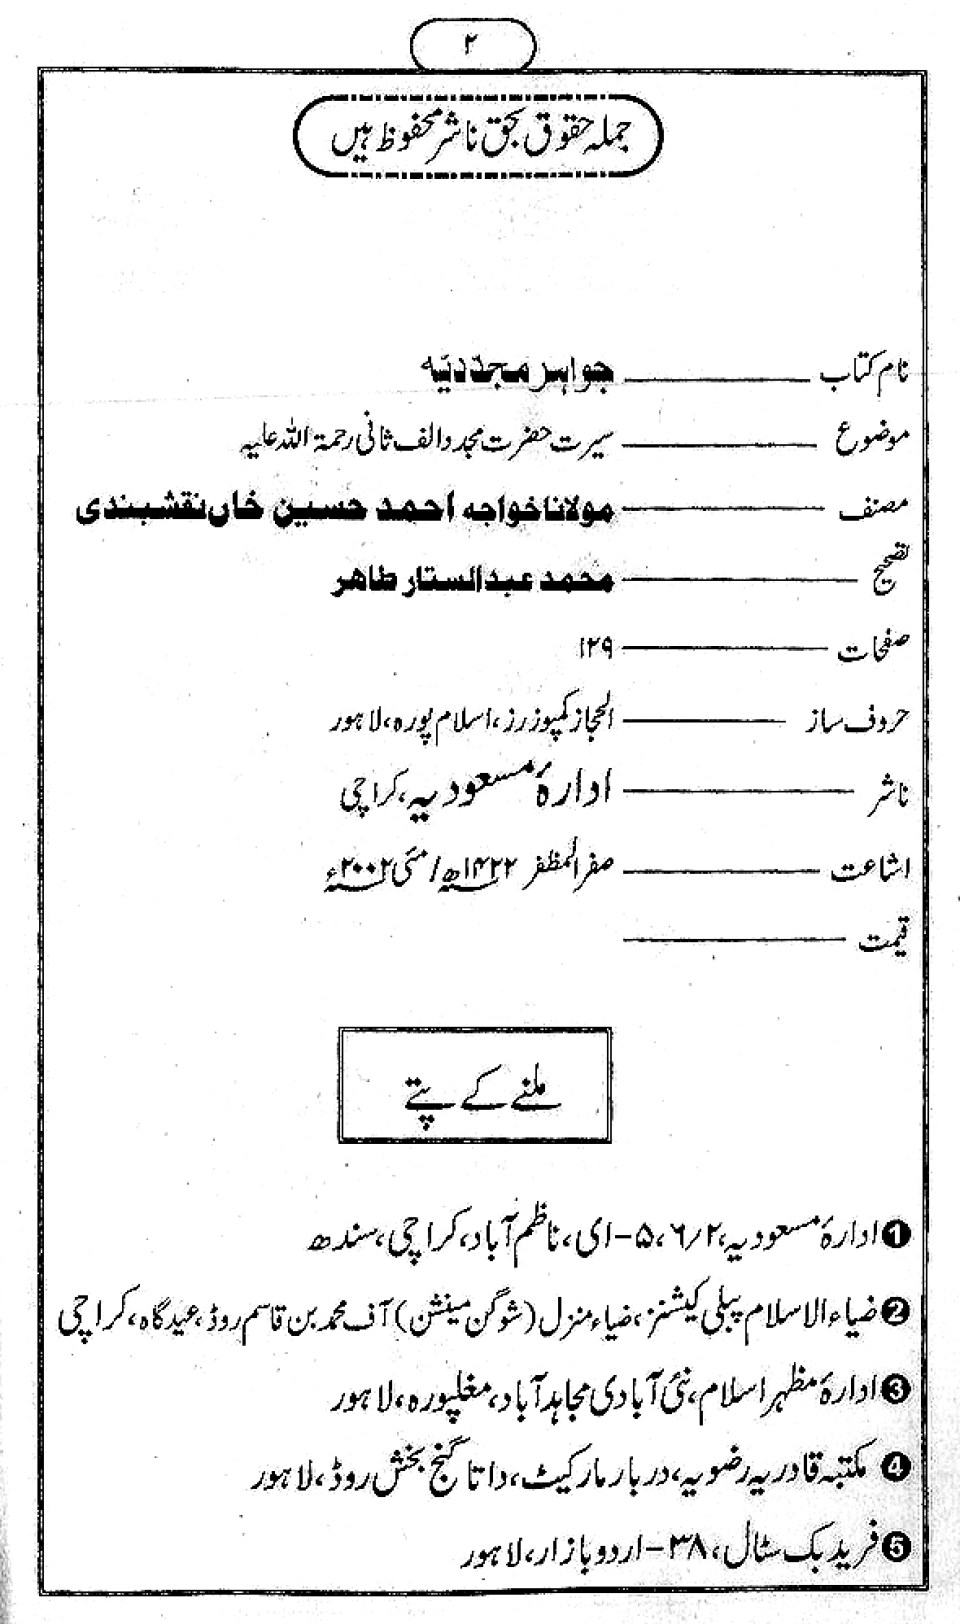 ۲
جملہ حقوق بحق ناشر محفوظ ہیں
نام کتاب ـــــــــ جواہر مجددیہ
موضوع ـــــــــ سیرت حضرت مجدد الف ثانی رحمۃ اللہ علیہ
مصنف ـــــــــ مولانا خواجہ احمد حسین خاں نقشبندی
تصحیح ـــــــــ محمد عبدالستار طاہر
صفحات ـــــــــ ۱۲۹
حروف ساز ـــــــــ الحجاز کمپوزرز، اسلام پورہ، لاہور
ناشر ـــــــــ ادارۂ مسعودیہ، کراچی
اشاعت ـــــــــ صفر المظفر ۱۴۲۲ھ/ مئی ۲۰۰۲ء
قیمت ـــــــــ
ملنے کے پتے
❶ ادارۂ مسعودیہ، ۶/۲، ۵-ای، ناظم آباد، کراچی، سندھ
❷ ضیاء الاسلام پبلی کیشنز، ضیاء منزل (شوگن مینشن) آف محمد بن قاسم روڈ، عیدگاہ، کراچی
❸ ادارۂ مظہر اسلام، نئی آبادی مجاہد آباد، مغلپورہ، لاہور
❹ مکتبہ قادریہ رضویہ، دربار مارکیٹ، داتا گنج بخش روڈ، لاہور
❺ فرید بک سٹال، ۳۸-اردو بازار، لاہور